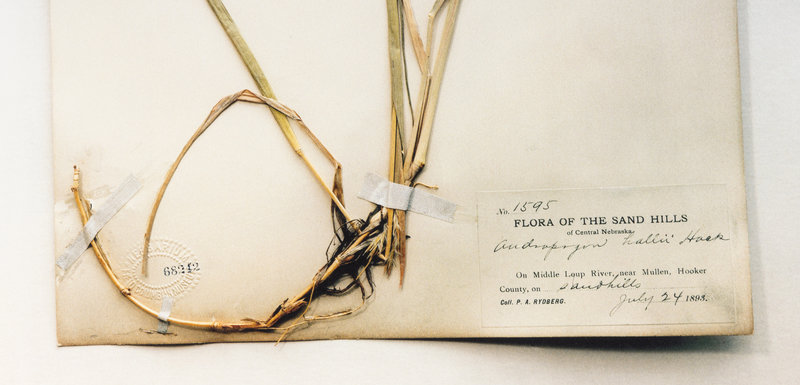 No. 1595
FLORA OF THE SAND HILLS
of Central Nebraska.
Andropogon hallii Hack
On Middle Loup River, near Mullen, Hooker
County, on sandhills
Coll. P. A. RYDBERG. July 24 1893.
68242